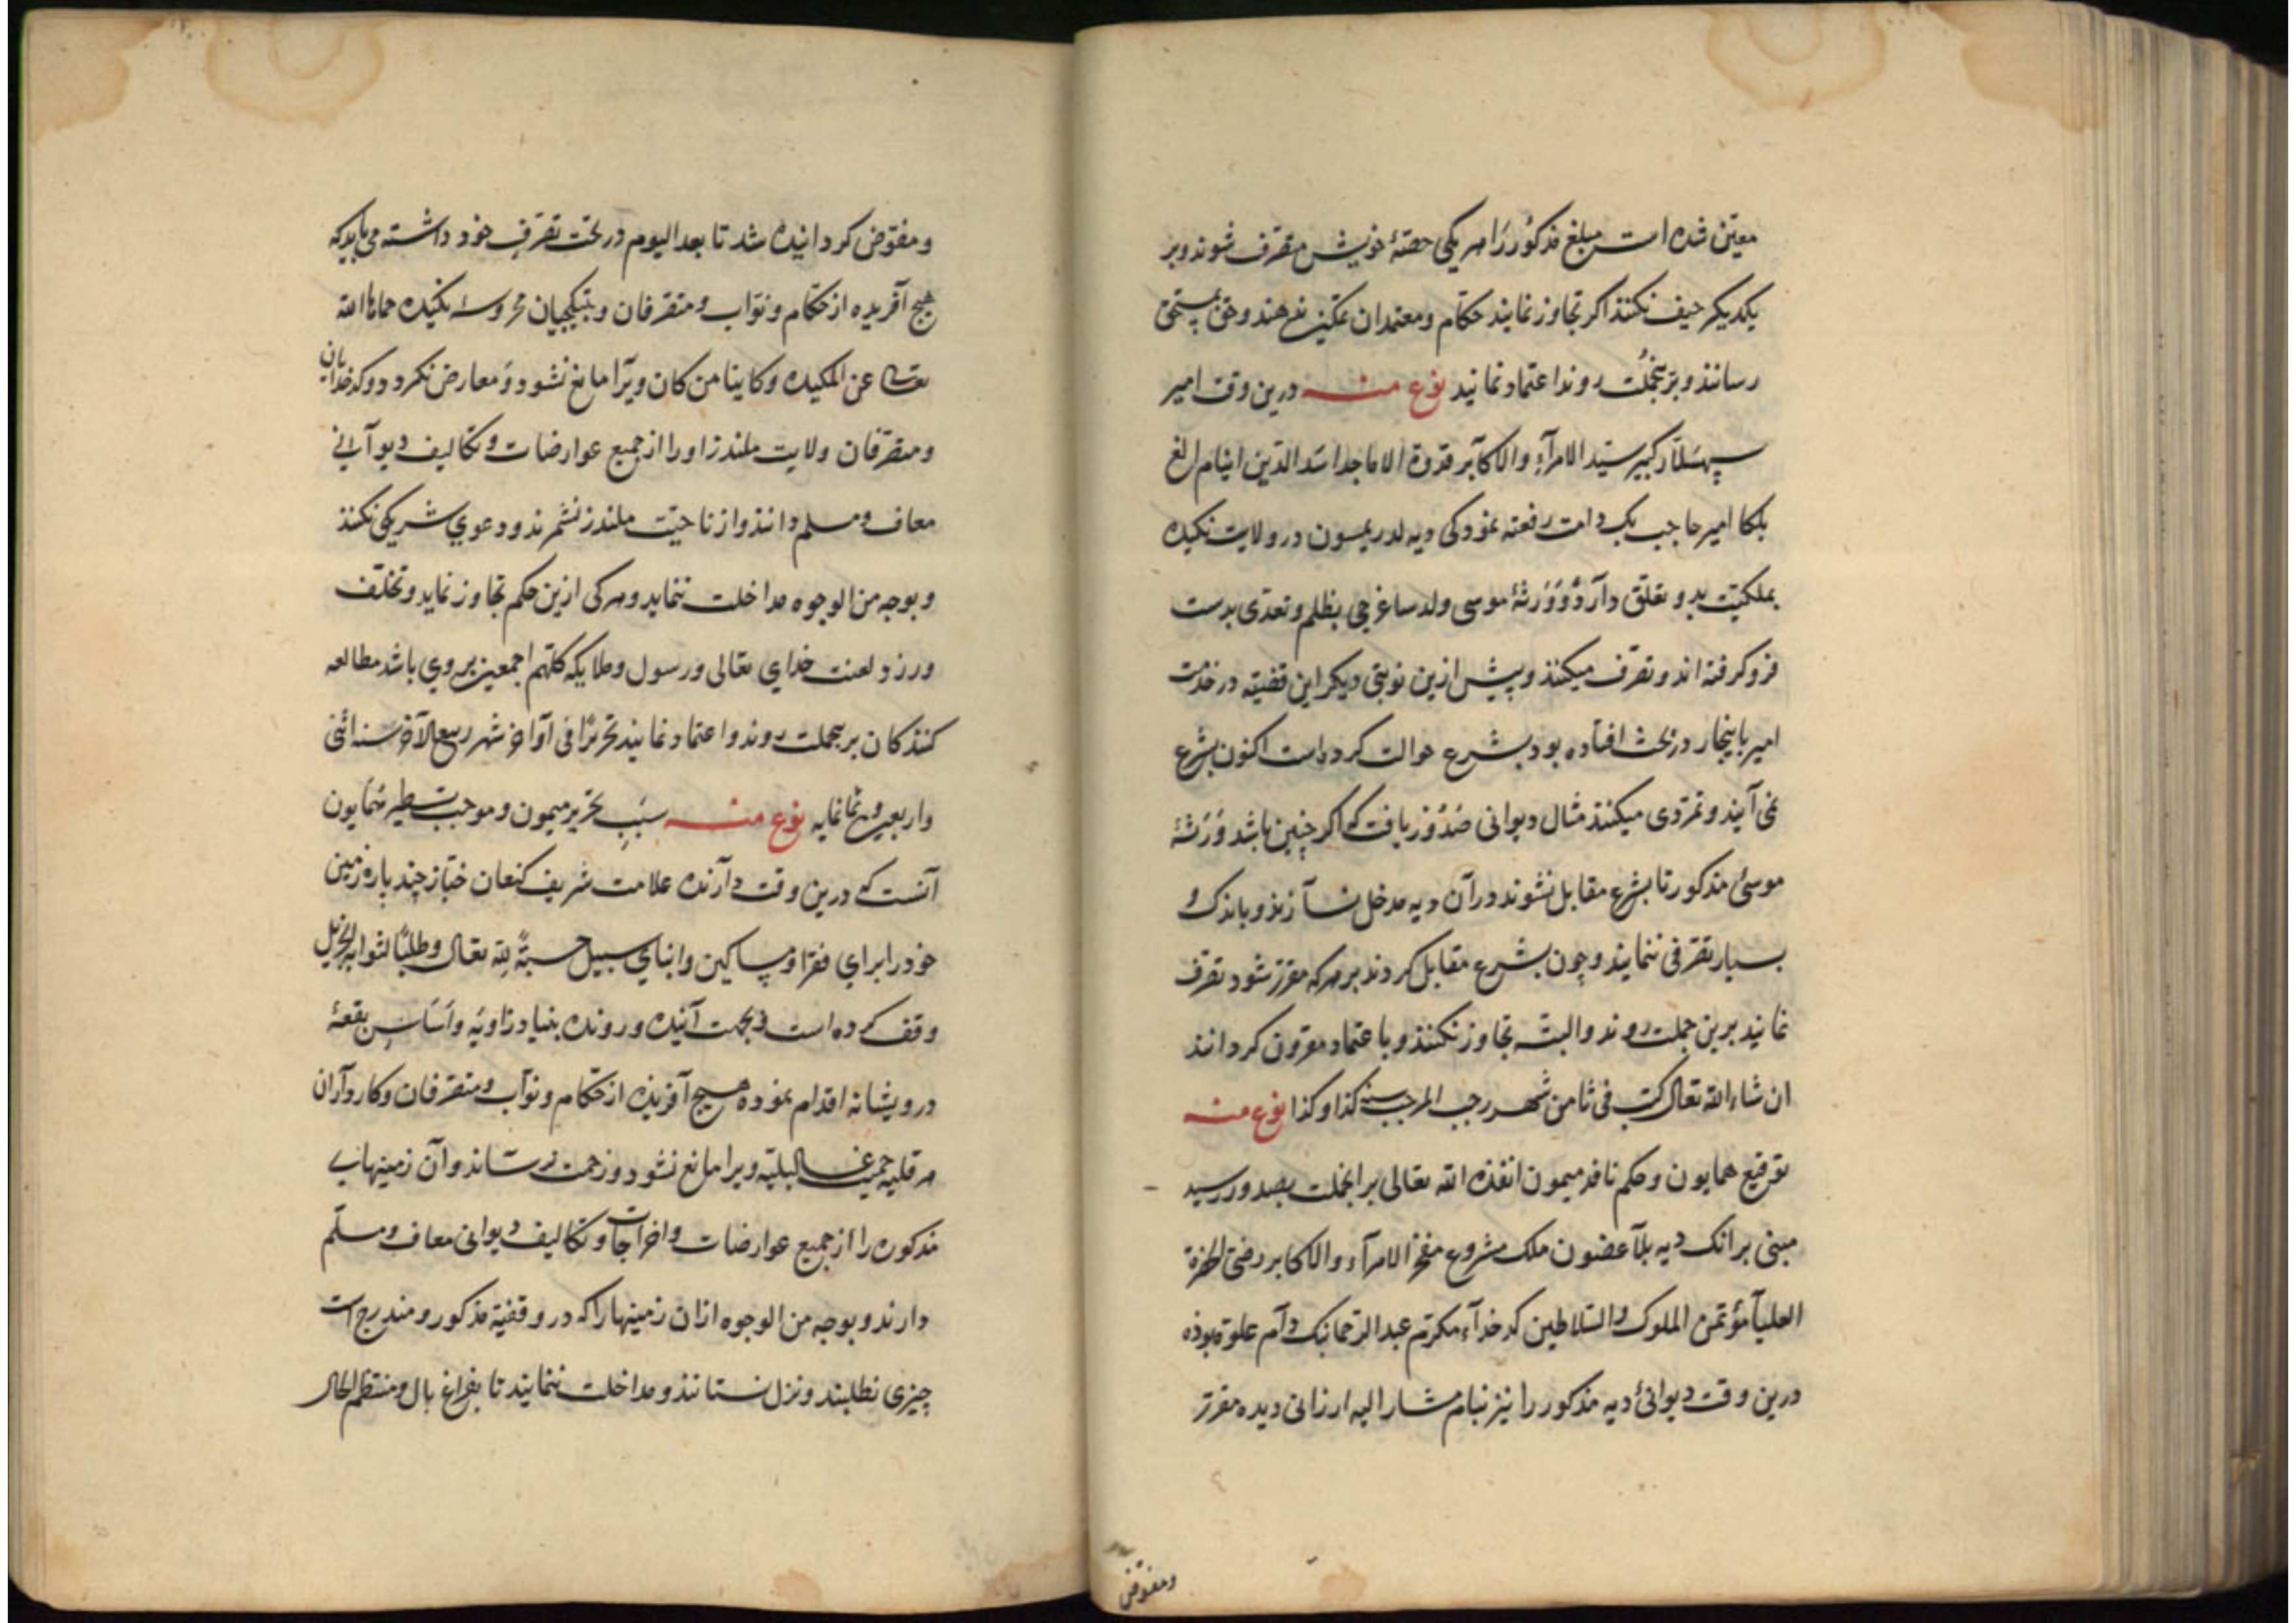 معین شده است مبلغ مذکور را هر یکی حصّهٔ خویش متصرف شوند و بر
یکدیکر حیف نکنند اکر تجاوز نمایند حکّام و معتمدان تمکین ندهند و حق بمستحق
رسانند و برینجملت روند اعتماد نمایند نوع منه درین وقت امیر
سپهسلار کبیر سیّد الامرآء والاکآبر قدوة الاماجد اسد الدین اینام الغ
بلکا امیر حاجب بک دامت رفعته نمود کی دیه لدریمسون در ولایت نکیده
بملکیّت بدو تعلّق دآرد وَوَرَثهٔ موسی ولد ساغرجی بظلم و تعدّی بدست
فرو کرفته اند و تصرّف میکنند و پیش ازین نوبتی دیکر این قضیّه در خدمت
امیر باینجار در بحث افتآده بود بشرع حوالت کرده است اکنون بشرع
نمی آیند و تمرّدی میکنند مثال دیوانی صُدُور یافت که اکر چنین باشد وَرَثهٔ
موسیٔ مذکور تا بشرع مقابل نشوند در آن دیه مدخل نسآزند و باندک و
بسیار تصرّفی ننمایند و چون بشرع مقابل کردند بر هر که مقرّر شود تصرّف
نمایند برین جملت روند و البتّه تجاوز نکنند و باعتماد مقرون کردانند
ان شاء الله تعالی کتب فی ثامن شهر رجب المرجب سنه کذا و کذا نوع منه
توقیع همایون و حکم نافذ میمون انفذه الله تعالی برانجملت بصدور رسید
مبنی بر انک دیه بلآعضون ملک مشروع مفخر الامرآء والاکابر رضیّ الحضرة
العلیآ مؤتمن الملوک والسّلاطین کدخدآء مکرّم عبد الرّحمانبک دآم علوّه بوذه
درین وقت دیوانیٔ دیه مذکور را نیز بنام مشار الیه ارزانی دیده مقرّر
ومفوّض
و مفوّض کردانیده شد تا بعد الیوم در تحت تصرّف خود داشته می بآید که
هیچ آفریده از حکّام و نوّاب و متصرّفان و بتیکجیان محروسهٔ نکیده حماها الله
تعالی عن المکیده و کاینا من کان ویرا مانع نشود و معارض نکردد و کدخدایان
و متصرّفان ولایت ملندز اورا از جمیع عوارضات و تکالیف دیوآنی
معاف و مسلم دانند و از ناحیّت ملندز نشمرند و دعوی شریکی نکنند
و بوجه من الوجوه مداخلت ننماید و هر کی ازین حکم تجاوز نماید و تخلّف
ورزد لعنت خدای تعالی و رسول و ملایکه کلّهم اجمعین بر وی باشد مطالعه
کنندکان برینجملت روند و اعتماد نمایند تحریرًا فی آواخر شهر ربیع الآخر سنه اثنی
واربعین و ثمانمایه نوع منه سبب تحریر میمون و موجب تسطیر همایون
آنست که درین وقت دآرنده علامت شریف کنعان خبّاز چند پاره زمین
خود را برای فقرا و مساکین و ابنای سبیل حسبةً لله تعالی و طلبًا لثوابه الجزیل
وقف کرده است و بجهت آینده و رونده بنیاد زاویه و اساس بقعهٔ
درویشانه اقدام نموده هیچ آفریذه از حکّام و نوّآب و متصرّفان و کاردآران
هر قلیه حمیت غـ البلیّه ویرا مانع نشود و زحمت نرسّاند و آن زمینهای
مذکوره را از جمیع عوارضات و اخراجات و تکالیف دیوانی معاف و مسلّم
دارند و بوجه من الوجوه ازان زمینها را که در وقفیّه مذکور و مندرج است
چیزی نطلبند و نزل نستانند و مداخلت ننمایند تا بفراغ بال و منتظم الحال